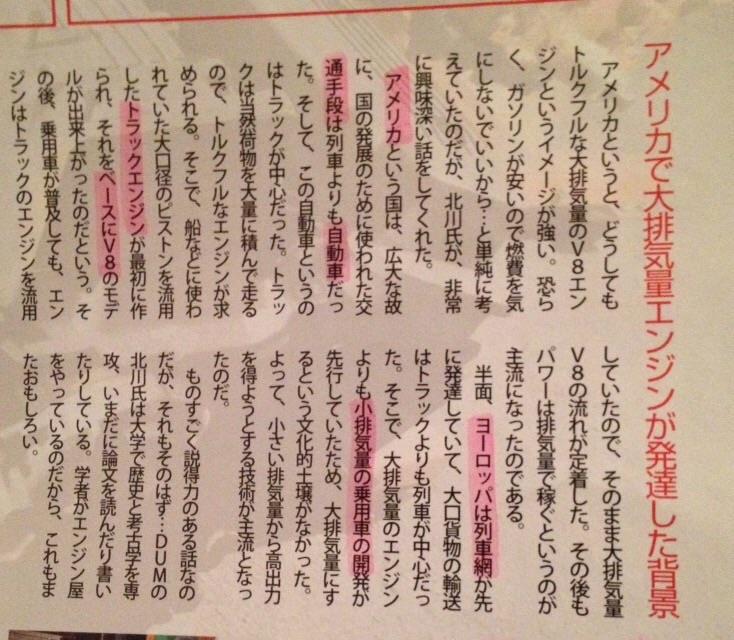 アメリカで大排気量エンジンが発達した背景
アメリカというと、どうしても
トルクフルな大排気量のV8エン
ジンというイメージが強い。恐ら
く、ガソリンが安いので燃費を気
にしないでいいから…と単純に考
えていたのだが、北川氏が、非常
に興味深い話をしてくれた。
アメリカという国は、広大な故
に、国の発展のために使われた交
通手段は列車よりも自動車だっ
た。そして、この自動車というの
はトラックが中心だった。トラッ
クは当然荷物を大量に積んで走る
ので、トルクフルなエンジンが求
められる。そこで、船などに使わ
れていた大口径のピストンを流用
したトラックエンジンが最初に作
られ、それをベースにV8のモデ
ルが出来上がったのだという。そ
の後、乗用車が普及しても、エン
ジンはトラックのエンジンを流用
していたので、そのまま大排気量
V8の流れが定着した。その後も
パワーは排気量で稼ぐというのが
主流になったのである。
半面、ヨーロッパは列車網が先
に発達していて、大口貨物の輸送
はトラックよりも列車が中心だっ
た。そこで、大排気量のエンジン
よりも小排気量の乗用車の開発が
先行していたため、大排気量にす
るという文化的土壌がなかった。
よって、小さい排気量から高出力
を得ようとする技術が主流となっ
たのだ。
ものすごく説得力のある話なの
だが、それもそのはず…DUMの
北川氏は大学で歴史と考古学を専
攻、いまだに論文を読んだり書い
たりしている。学者がエンジン屋
をやっているのだから、これもま
たおもしろい。